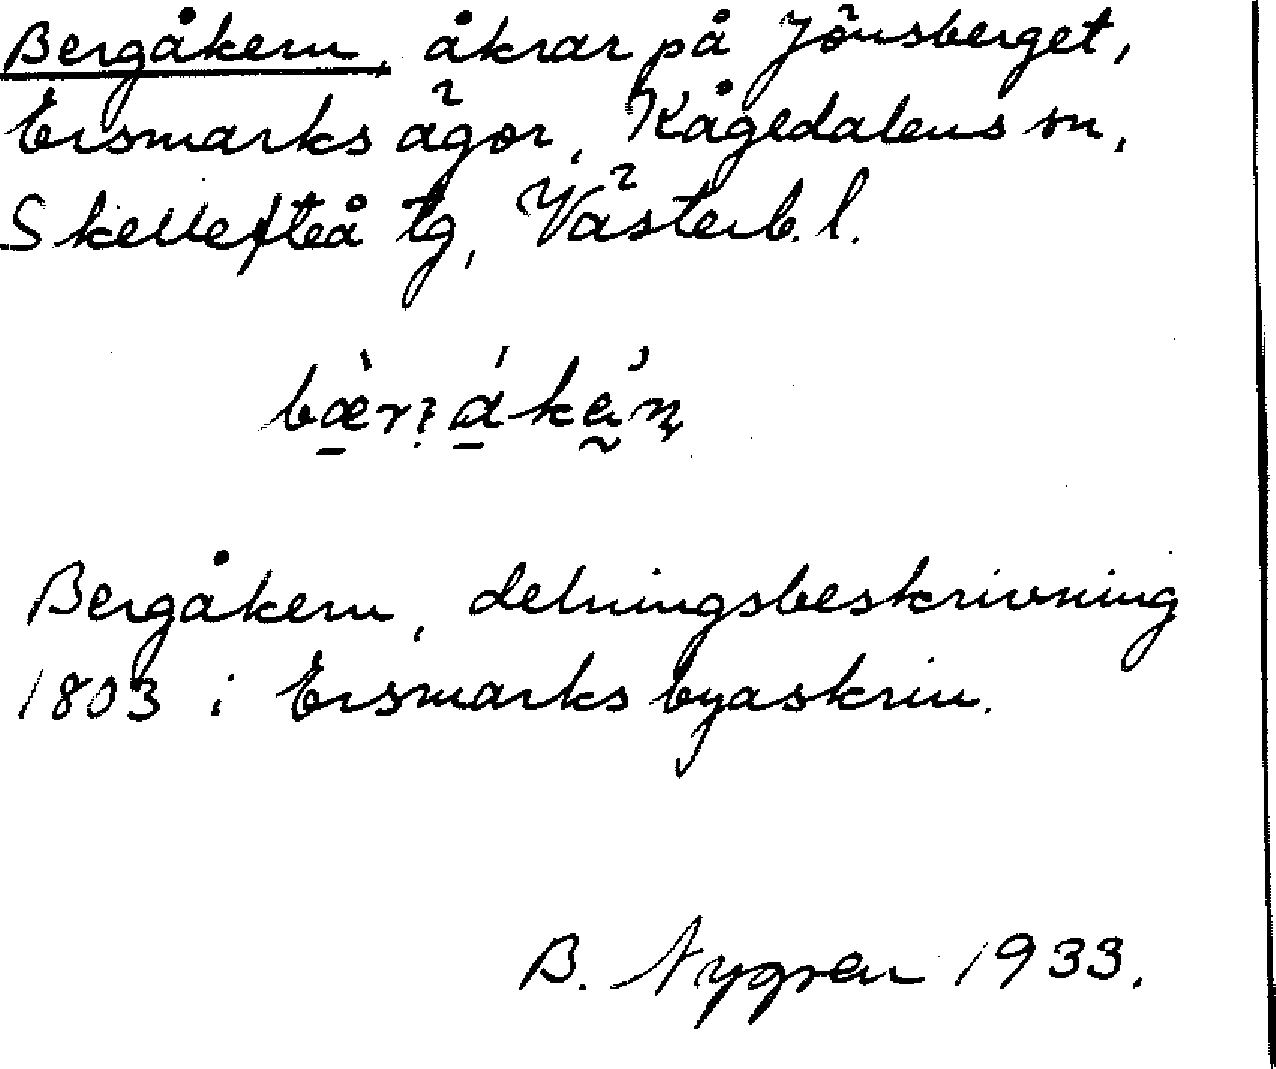 Bergåkern, åkrar på Jönsberget,
Ersmarks ägor, Kågedalens sn,
Skellefteå tg, Västerb. l.
Bergåkern, delningsbeskrivning
1803 i Ersmarks byaskrin.
B. Nygren 1933.